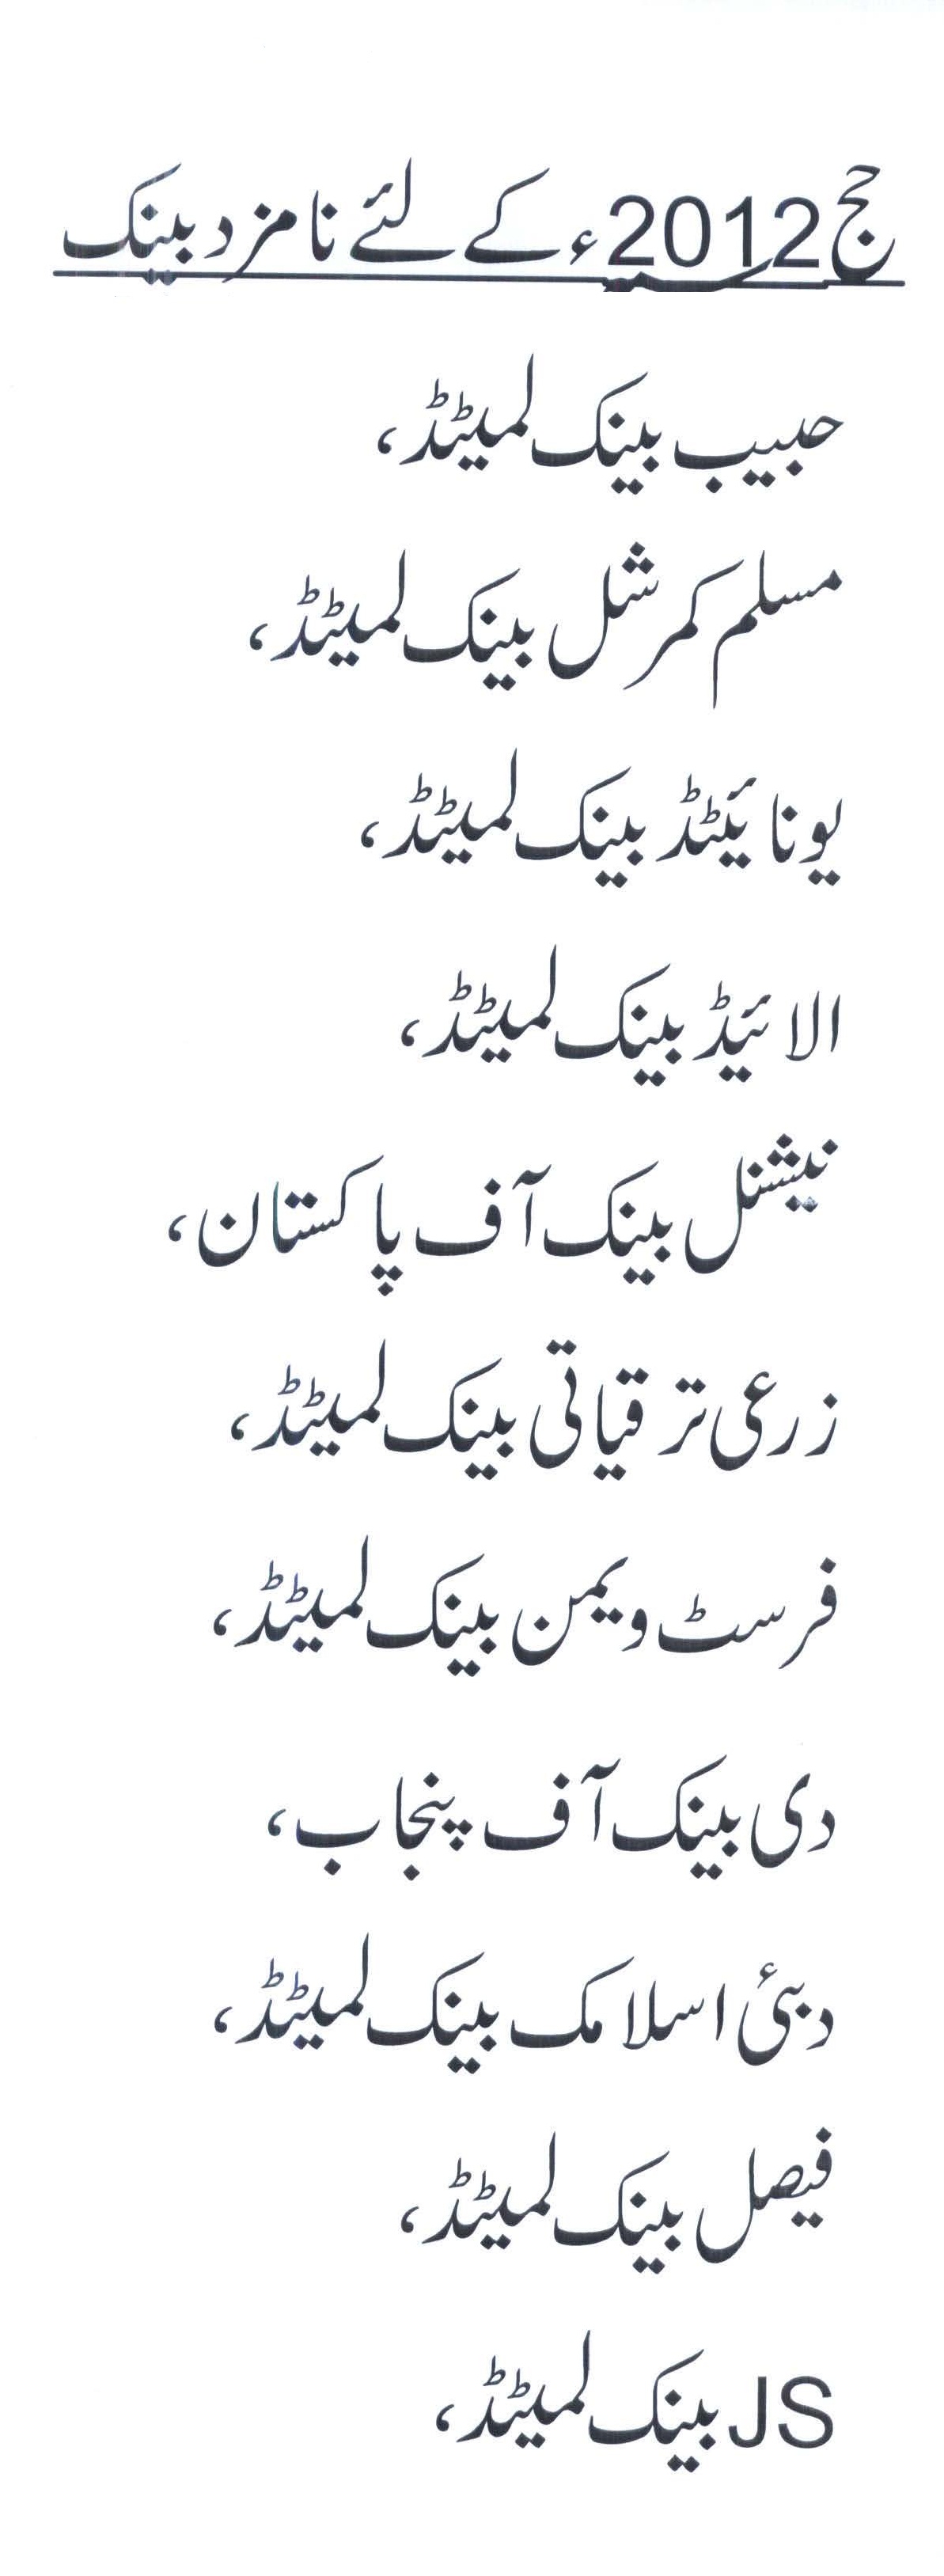 حج 2012ء کے لئے نامزد بینک
حبیب بینک لمیٹڈ،
مسلم کمرشل بینک لمیٹڈ،
یونائیٹڈ بینک لمیٹڈ،
الائیڈ بینک لمیٹڈ،
نیشنل بینک آف پاکستان،
زرعی ترقیاتی بینک لمیٹڈ،
فرسٹ ویمن بینک لمیٹڈ،
دی بینک آف پنجاب،
دبئ اسلامک بینک لمیٹڈ،
فیصل بینک لمیٹڈ،
JS بینک لمیٹڈ،